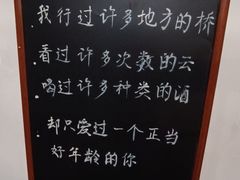 我行过许多地方的桥
看过许多次数的云
喝过许多种类的酒
却只爱过一个正当
好年龄的你